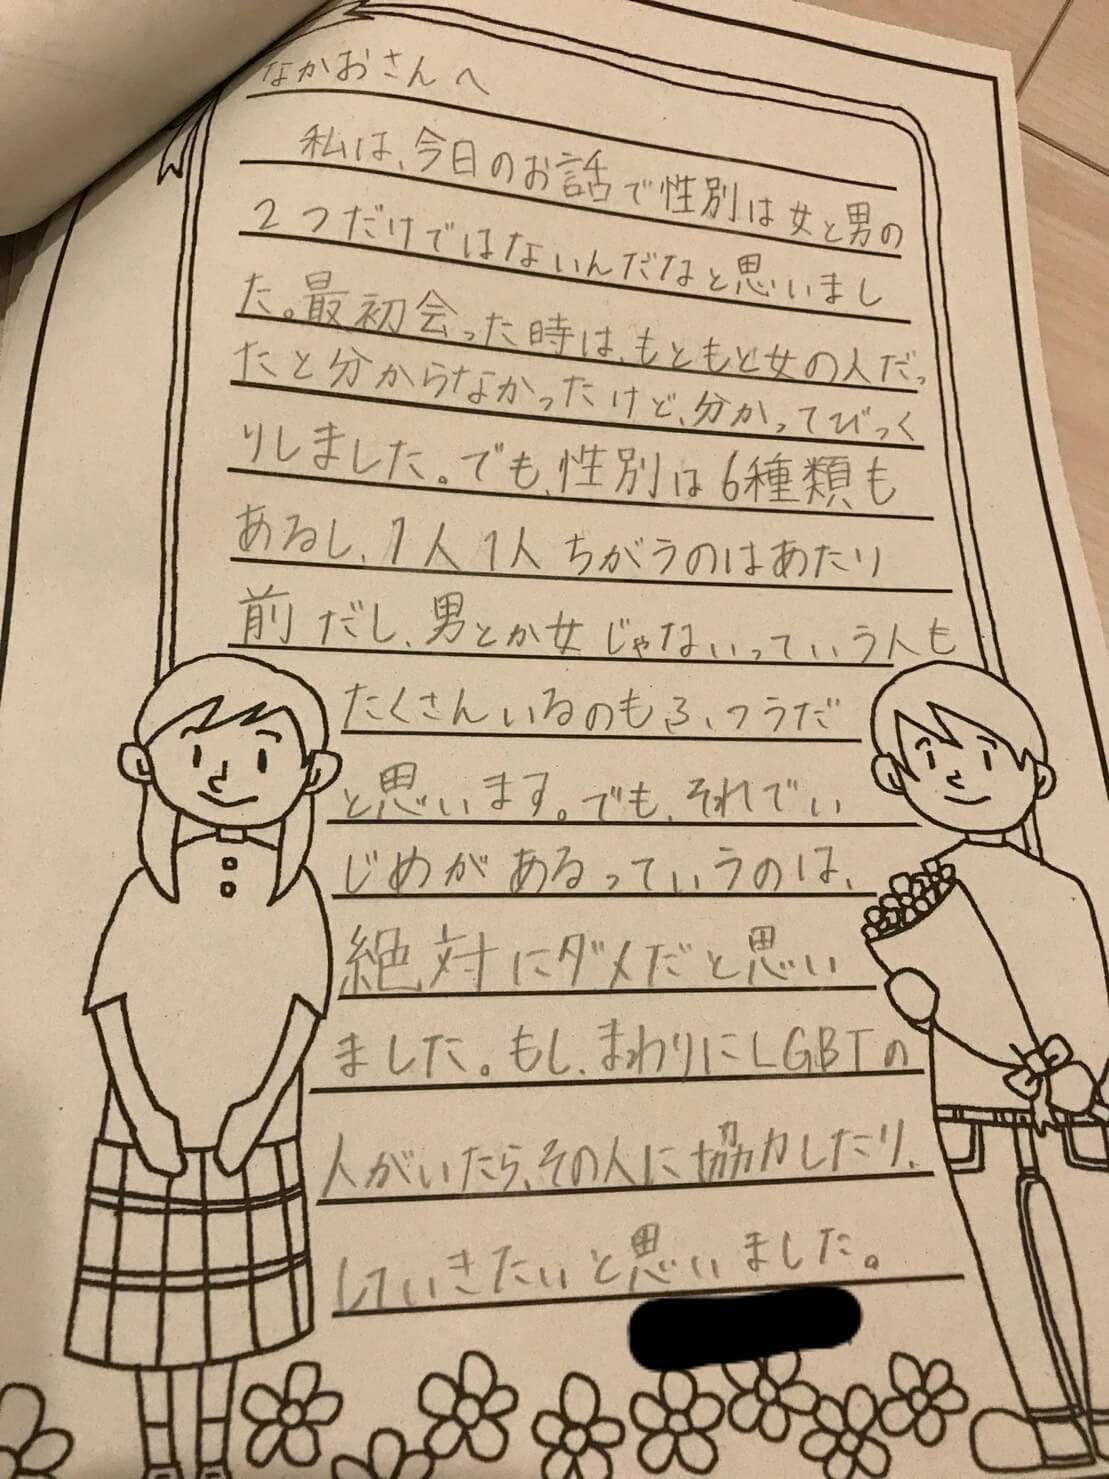 なかおさんへ
私は、今日のお話で性別は女と男の
2つだけではないんだなと思いまし
た。最初会った時は、もともと女の人だっ
たと分からなかったけど、分かってびっく
りしました。でも、性別は6種類も
あるし、1人1人ちがうのはあたり
前だし、男とか女じゃないっていう人も
たくさんいるのもふつうだ
と思います。でも、それでい
じめがあるっていうのは、
絶対にダメだと思い
ました。もし、まわりにLGBTの
人がいたら、その人に協力したり、
していきたいと思いました。